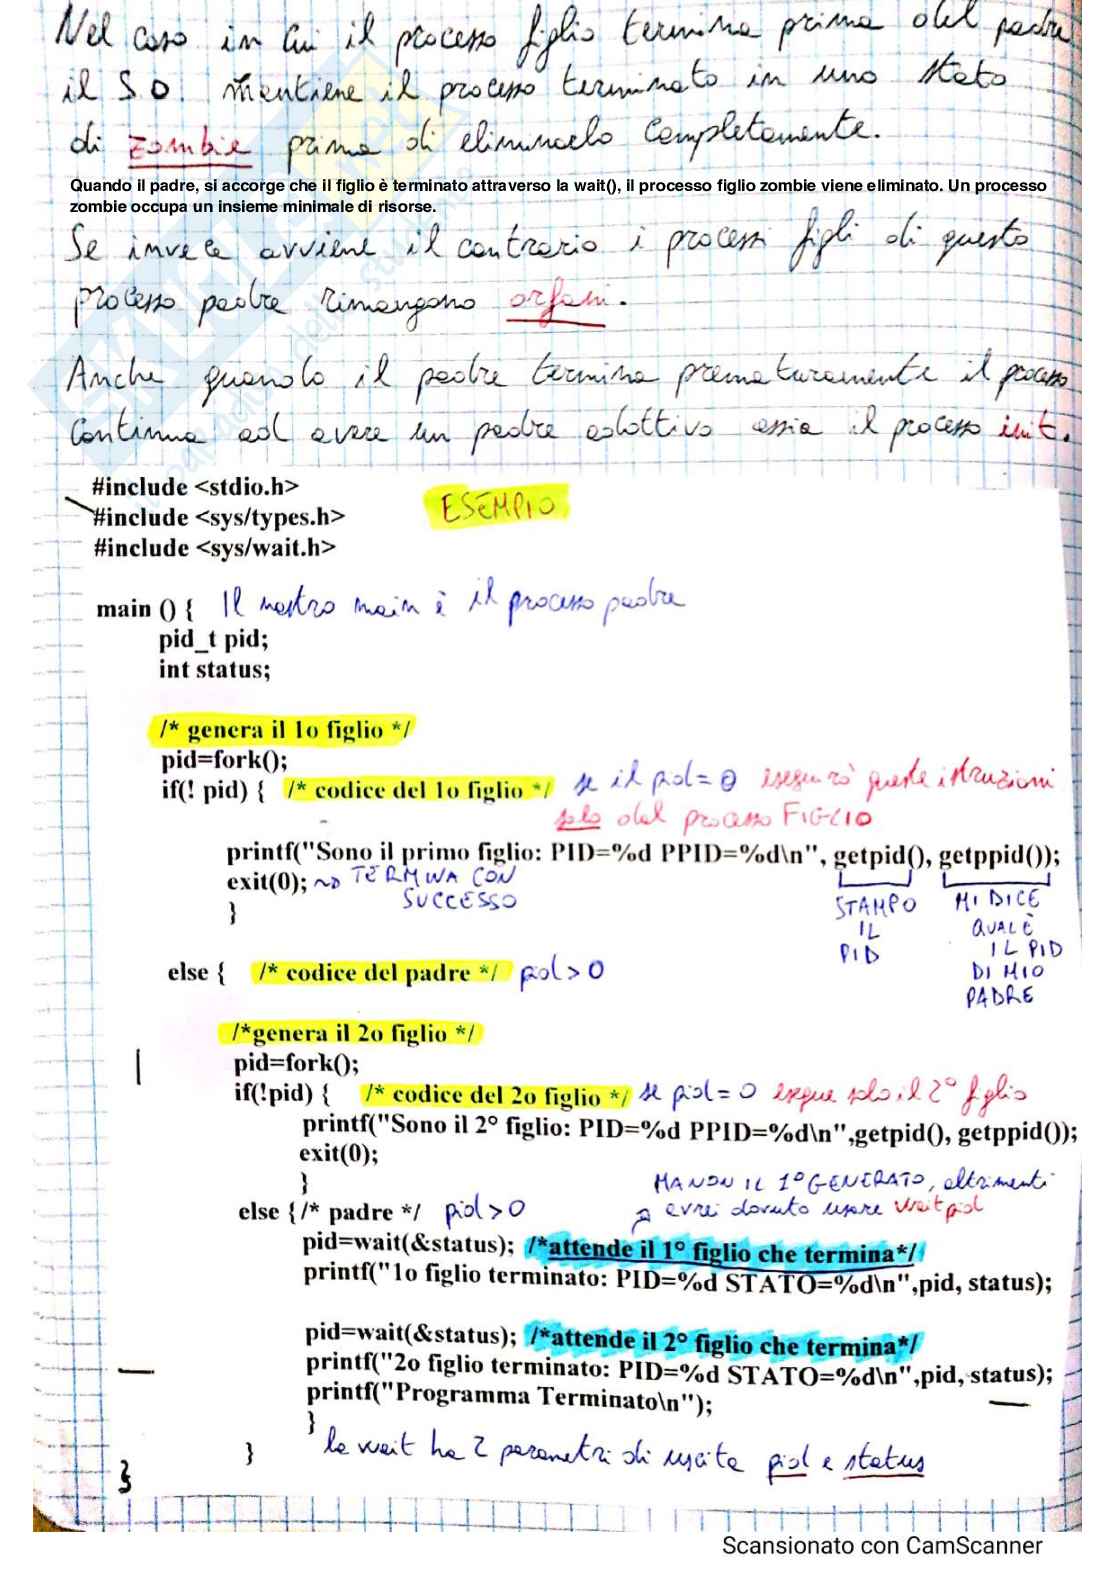 Nel caso in cui il processo figlio termina prima del padre
il S.O. mantiene il processo terminato in uno stato
di zombie prima di eliminarlo completamente.
Quando il padre, si accorge che il figlio è terminato attraverso la wait(), il processo figlio zombie viene eliminato. Un processo
zombie occupa un insieme minimale di risorse.
Se invece avviene il contrario i processi figli di questo
processo padre rimangono orfani.
Anche quando il padre termina prematuramente il processo
continua ad avere un padre adottivo ossia il processo init.
#include <stdio.h>
ESEMPIO
#include <sys/types.h>
#include <sys/wait.h>
main () { Il nostro main è il processo padre
pid_t pid;
int status;
/* genera il 1o figlio */
pid=fork();
if(! pid) { /* codice del 1o figlio */ se il pid = 0 eseguirò queste istruzioni
solo dal processo FIGLIO
printf("Sono il primo figlio: PID=%d PPID=%d\n", getpid(), getppid());
exit(0); ~> TERMINA CON
SUCCESSO
STAMPO
IL
PID
MI DICE
QUAL È
IL PID
DI MIO
PADRE
}
else { /* codice del padre */ pid > 0
/*genera il 2o figlio */
pid=fork();
if(!pid) { /* codice del 2o figlio */ se pid = 0 esegue solo il 2° figlio
printf("Sono il 2° figlio: PID=%d PPID=%d\n",getpid(), getppid());
exit(0);
}
MA NON IL 1° GENERATO, altrimenti
else {/* padre */ pid > 0
avrei dovuto usare waitpid
pid=wait(&status); /*attende il 1° figlio che termina*/
printf("1o figlio terminato: PID=%d STATO=%d\n",pid, status);
pid=wait(&status); /*attende il 2° figlio che termina*/
printf("2o figlio terminato: PID=%d STATO=%d\n",pid, status);
printf("Programma Terminato\n");
}
} la wait ha 2 parametri di uscita pid e status
}
Scansionato con CamScanner